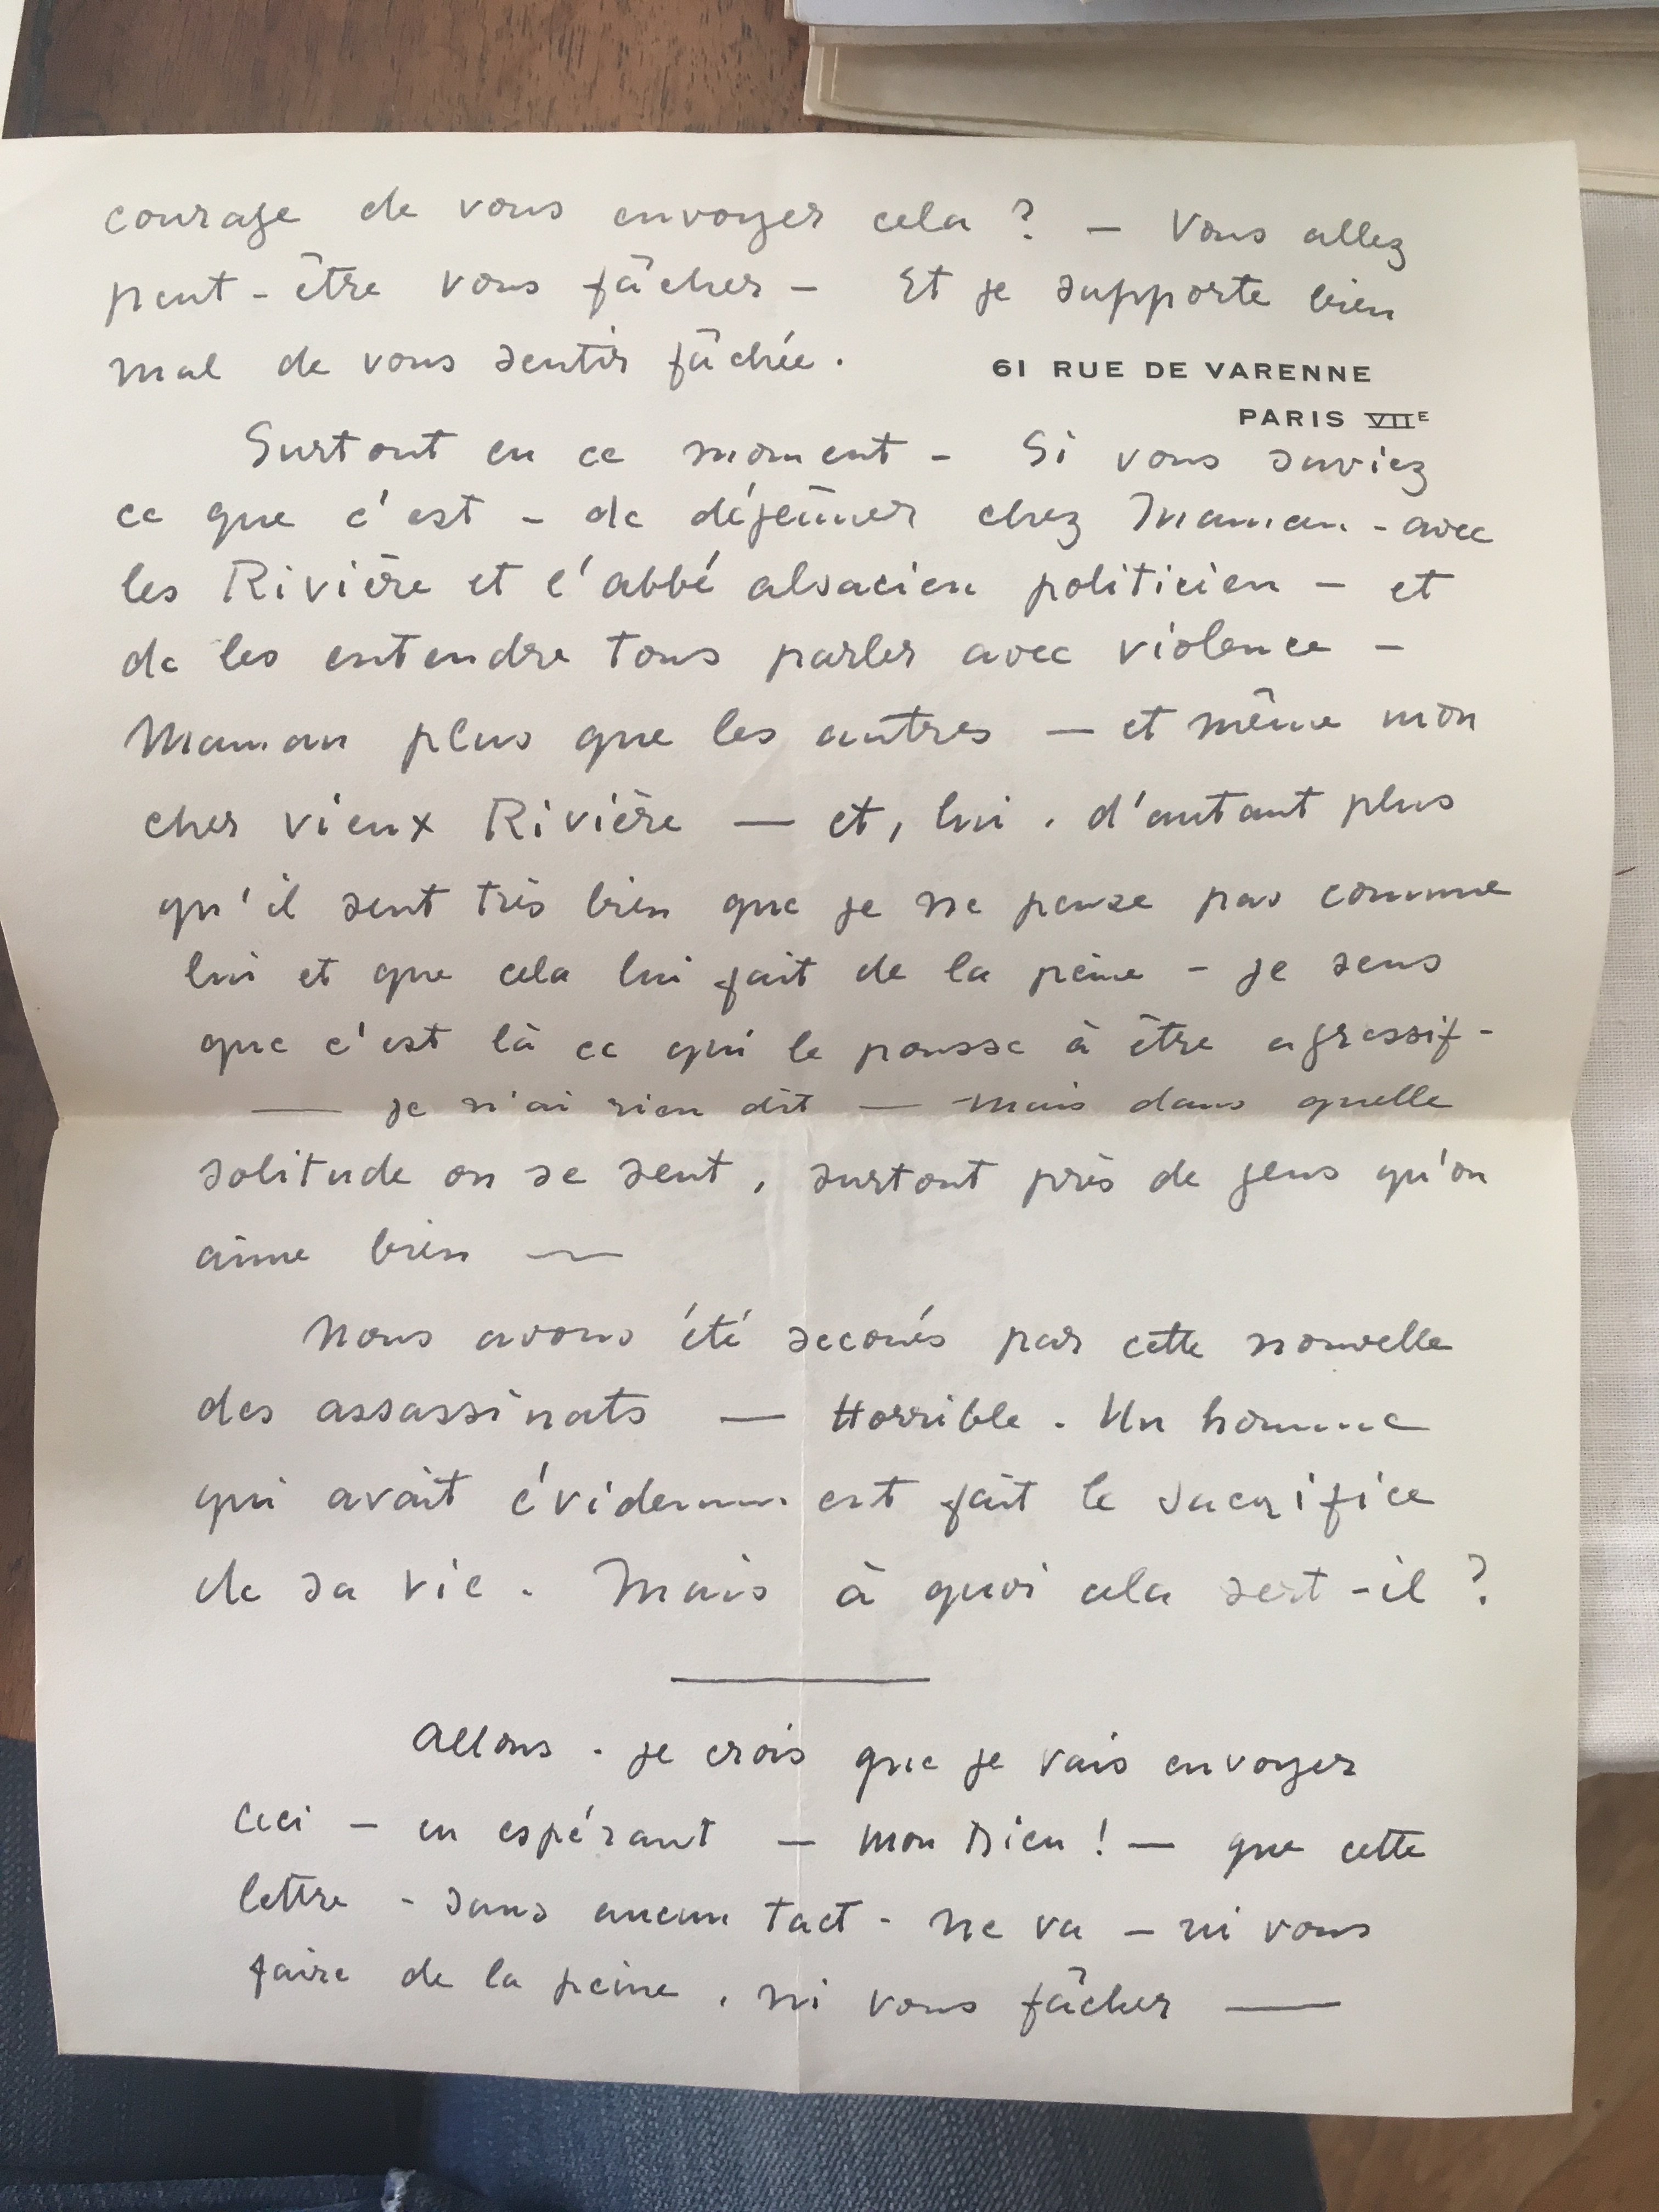 courage de vous envoyer cela ? — Vous allez
peut-être vous fâcher — Et je supporte bien
mal de vous sentir fâchée.
61 RUE DE VARENNE
PARIS VIIE
Surtout en ce moment - Si vous saviez
ce que c'est - de déjeûner chez Maman - avec
les Rivière et l'abbé alsacien politicien - et
de les entendre tous parler avec violence -
Maman plus que les autres — et même mon
cher vieux Rivière — et, lui, d'autant plus
qu'il sent très bien que je ne pense pas comme
lui et que cela lui fait de la peine - je sens
que c'est là ce qui le pousse à être agressif -
— je n'ai rien dit — mais dans quelle
solitude on se sent, surtout près de gens qu'on
aime bien —
Nous avons été secoués par cette nouvelle
des assassinats — Horrible. Un homme
qui avait évidemment fait le sacrifice
de sa vie. Mais à quoi cela sert-il ?
Allons. je crois que je vais envoyer
ceci — en espérant — mon Dieu ! — que cette
lettre - sans aucun tact - ne va — ni vous
faire de la peine, ni vous fâcher —